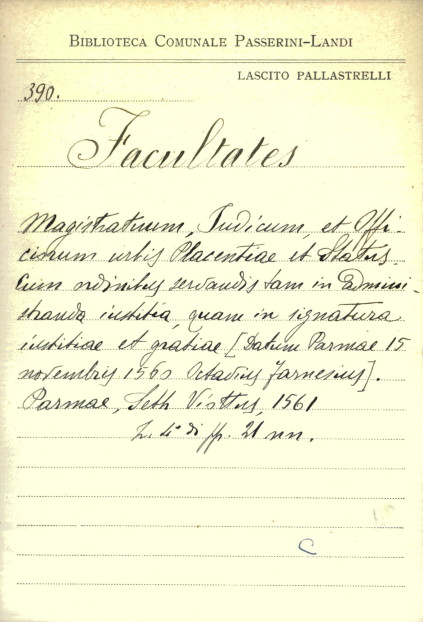 BIBLIOTECA COMUNALE PASSERINI-LANDI
LASCITO PALLASTRELLI
390.
Facultates
Magistratuum, Iudicum, et Offi-
ciorum urbis Placentiae et Status
cum ordinibus servandis tam in admini-
stranda iustitia, quam in signatura
iustitiae et gratiae [Datum Parmae 15
novembris 1560 Octavius Farnesius].
Parmae, Seth Viottus, 1561
4° di pp. 21 nn.
C